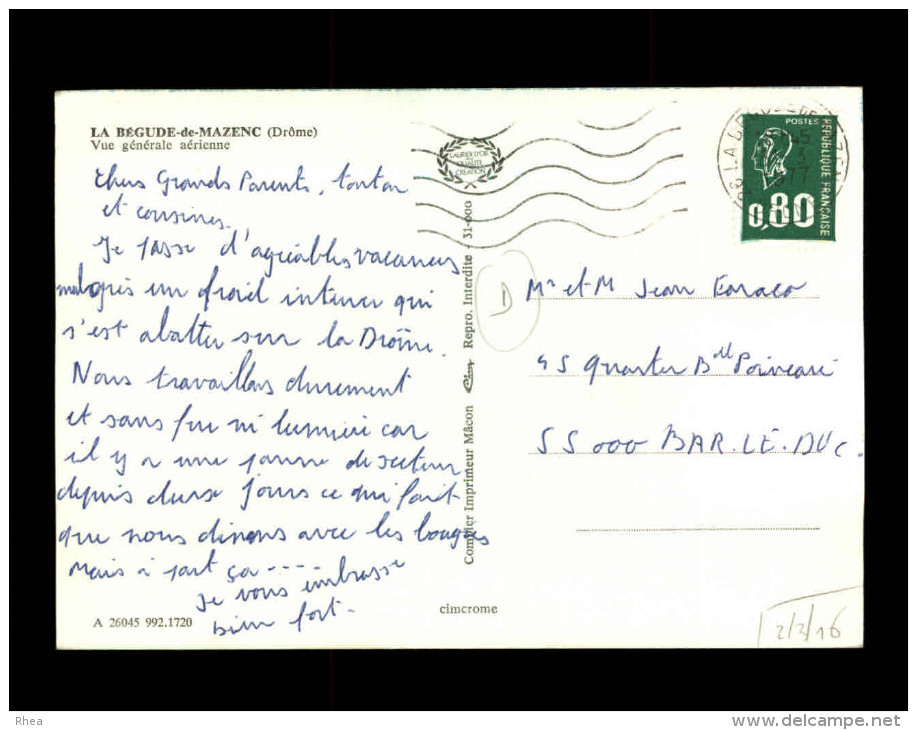 LA BÉGUDE-de-MAZENC (Drôme)
Vue générale aérienne
Chers Grands Parents, tonton
et cousines
Je passe d'agréables vacances
malgrés un froid intense qui
s'est abattu sur la Drôme.
Nous travaillons durement
et sans feu ni lumière car
il y a une panne de secteur
depuis deux jours ce qui fait
que nous dinons avec les bougies
Mais à part ça ----
Je vous embrasse
bien fort-
A 26045 992.1720
LAURIER D'OR
QUALITÉ
CREATION
Combier Imprimeur Mâcon Cim Repro. Interdite - 31-000
cimcrome
D
POSTES
RÉPUBLIQUE FRANÇAISE
0,80
Mr et M Jean
45 Quartier Bd Poincaré
55 000 BAR.LE.DUC.
2/3/16
Rhea
www.delcampe.net